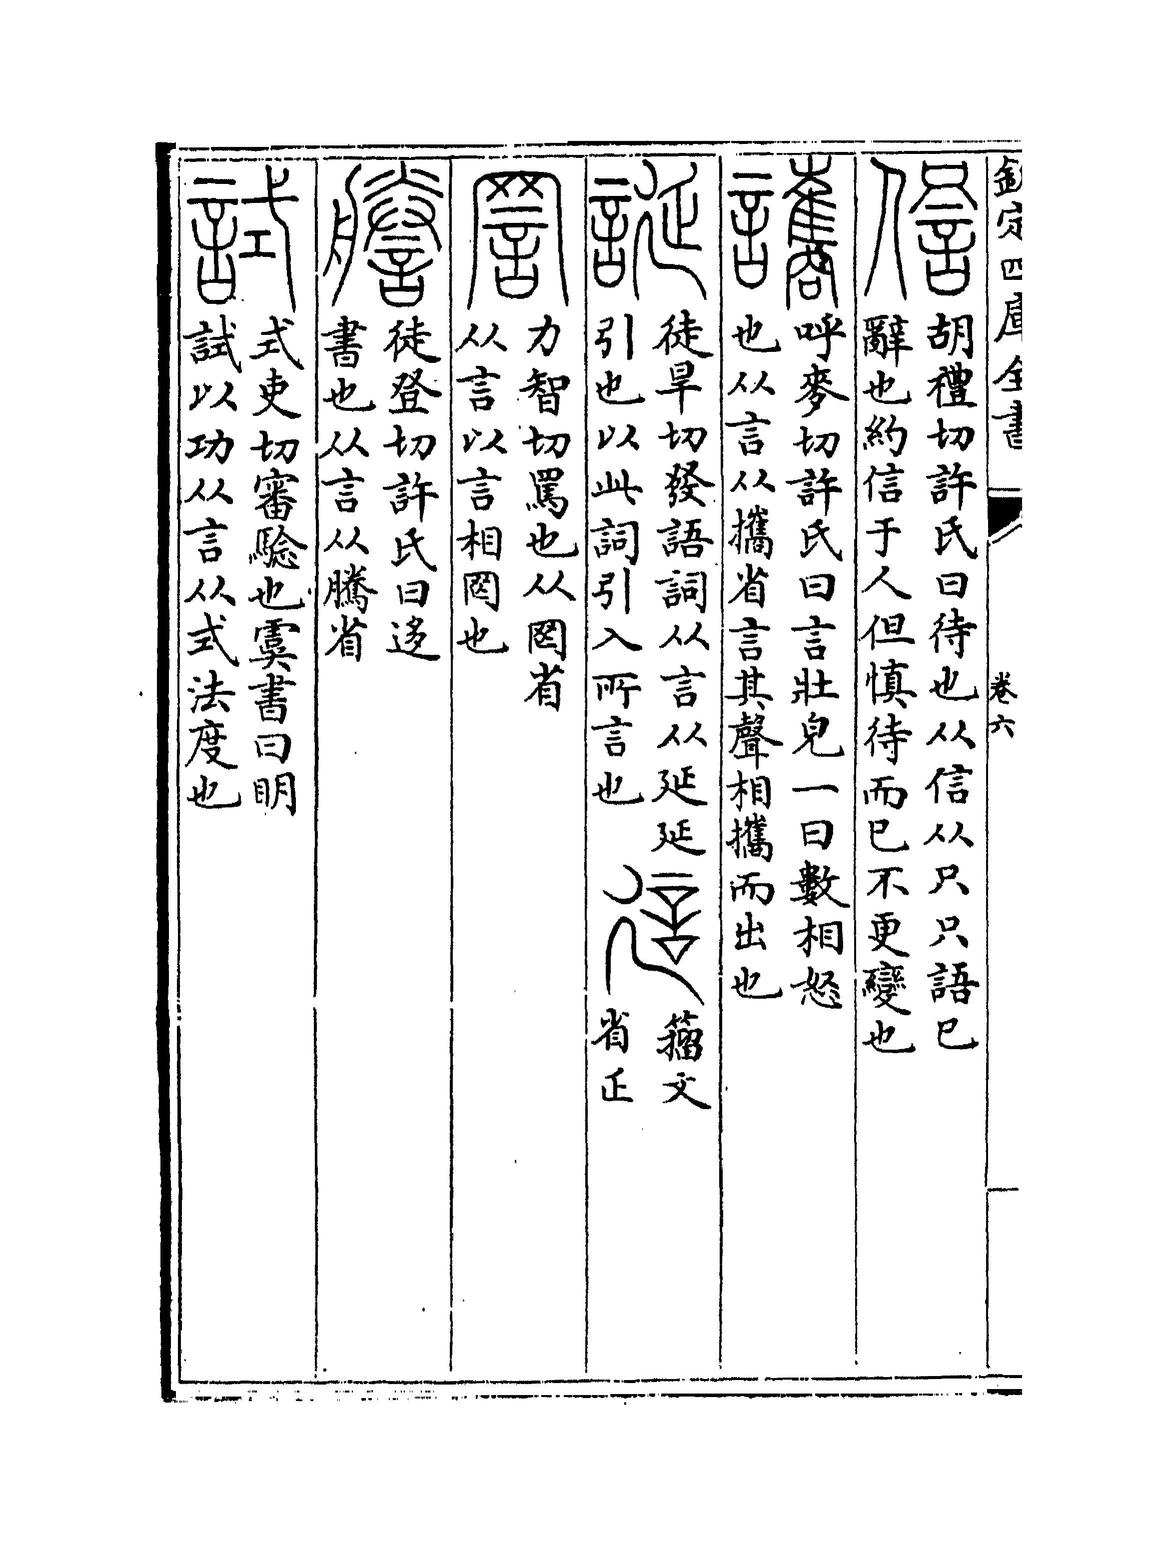 欽定四庫全書
卷六
胡禮切許氏曰待也从信从只只語巳
辭也約信于人但慎待而巳不更變也
呼麥切許氏曰言壯皃一曰數相怒
也从言从攜省言其聲相攜而出也
徒旱切發語詞从言从延延
引也以此詞引入所言也
籀文
省正
力智切罵也从罔省
从言以言相罔也
徒登切許氏曰迻
書也从言从騰省
式吏切審驗也虞書曰明
試以功从言从式法度也